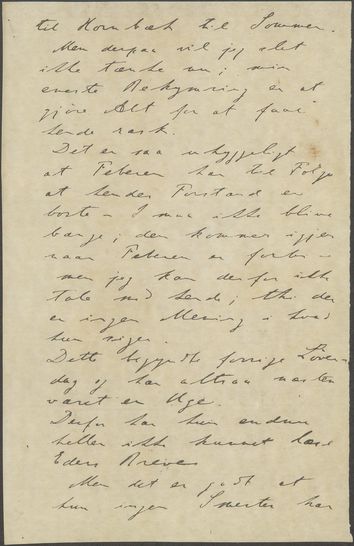 til Hornbæk til Sommer.
Men derpaa vil jeg slet
ikke tænke nu; min
eneste Bekymring er at
gjøre Alt for at faae
hende rask.
Det er saa uhyggeligt
at Feberen har til Følge
at hendes Forstand er
borte – I maa ikke blive
bange; den kommer igjen
naar Feberen er forbi –
men jeg kan derfor ikke
tale med hende; thi der
er ingen Mening i hvad
hun siger.
Dette begyndte forrige Løver-
dag og har altsaa næsten
været en Uge.
Derfor har hun endnu
heller ikke kunnet læse
Eders Breve
Men det er godt at
hun ingen Smerter har